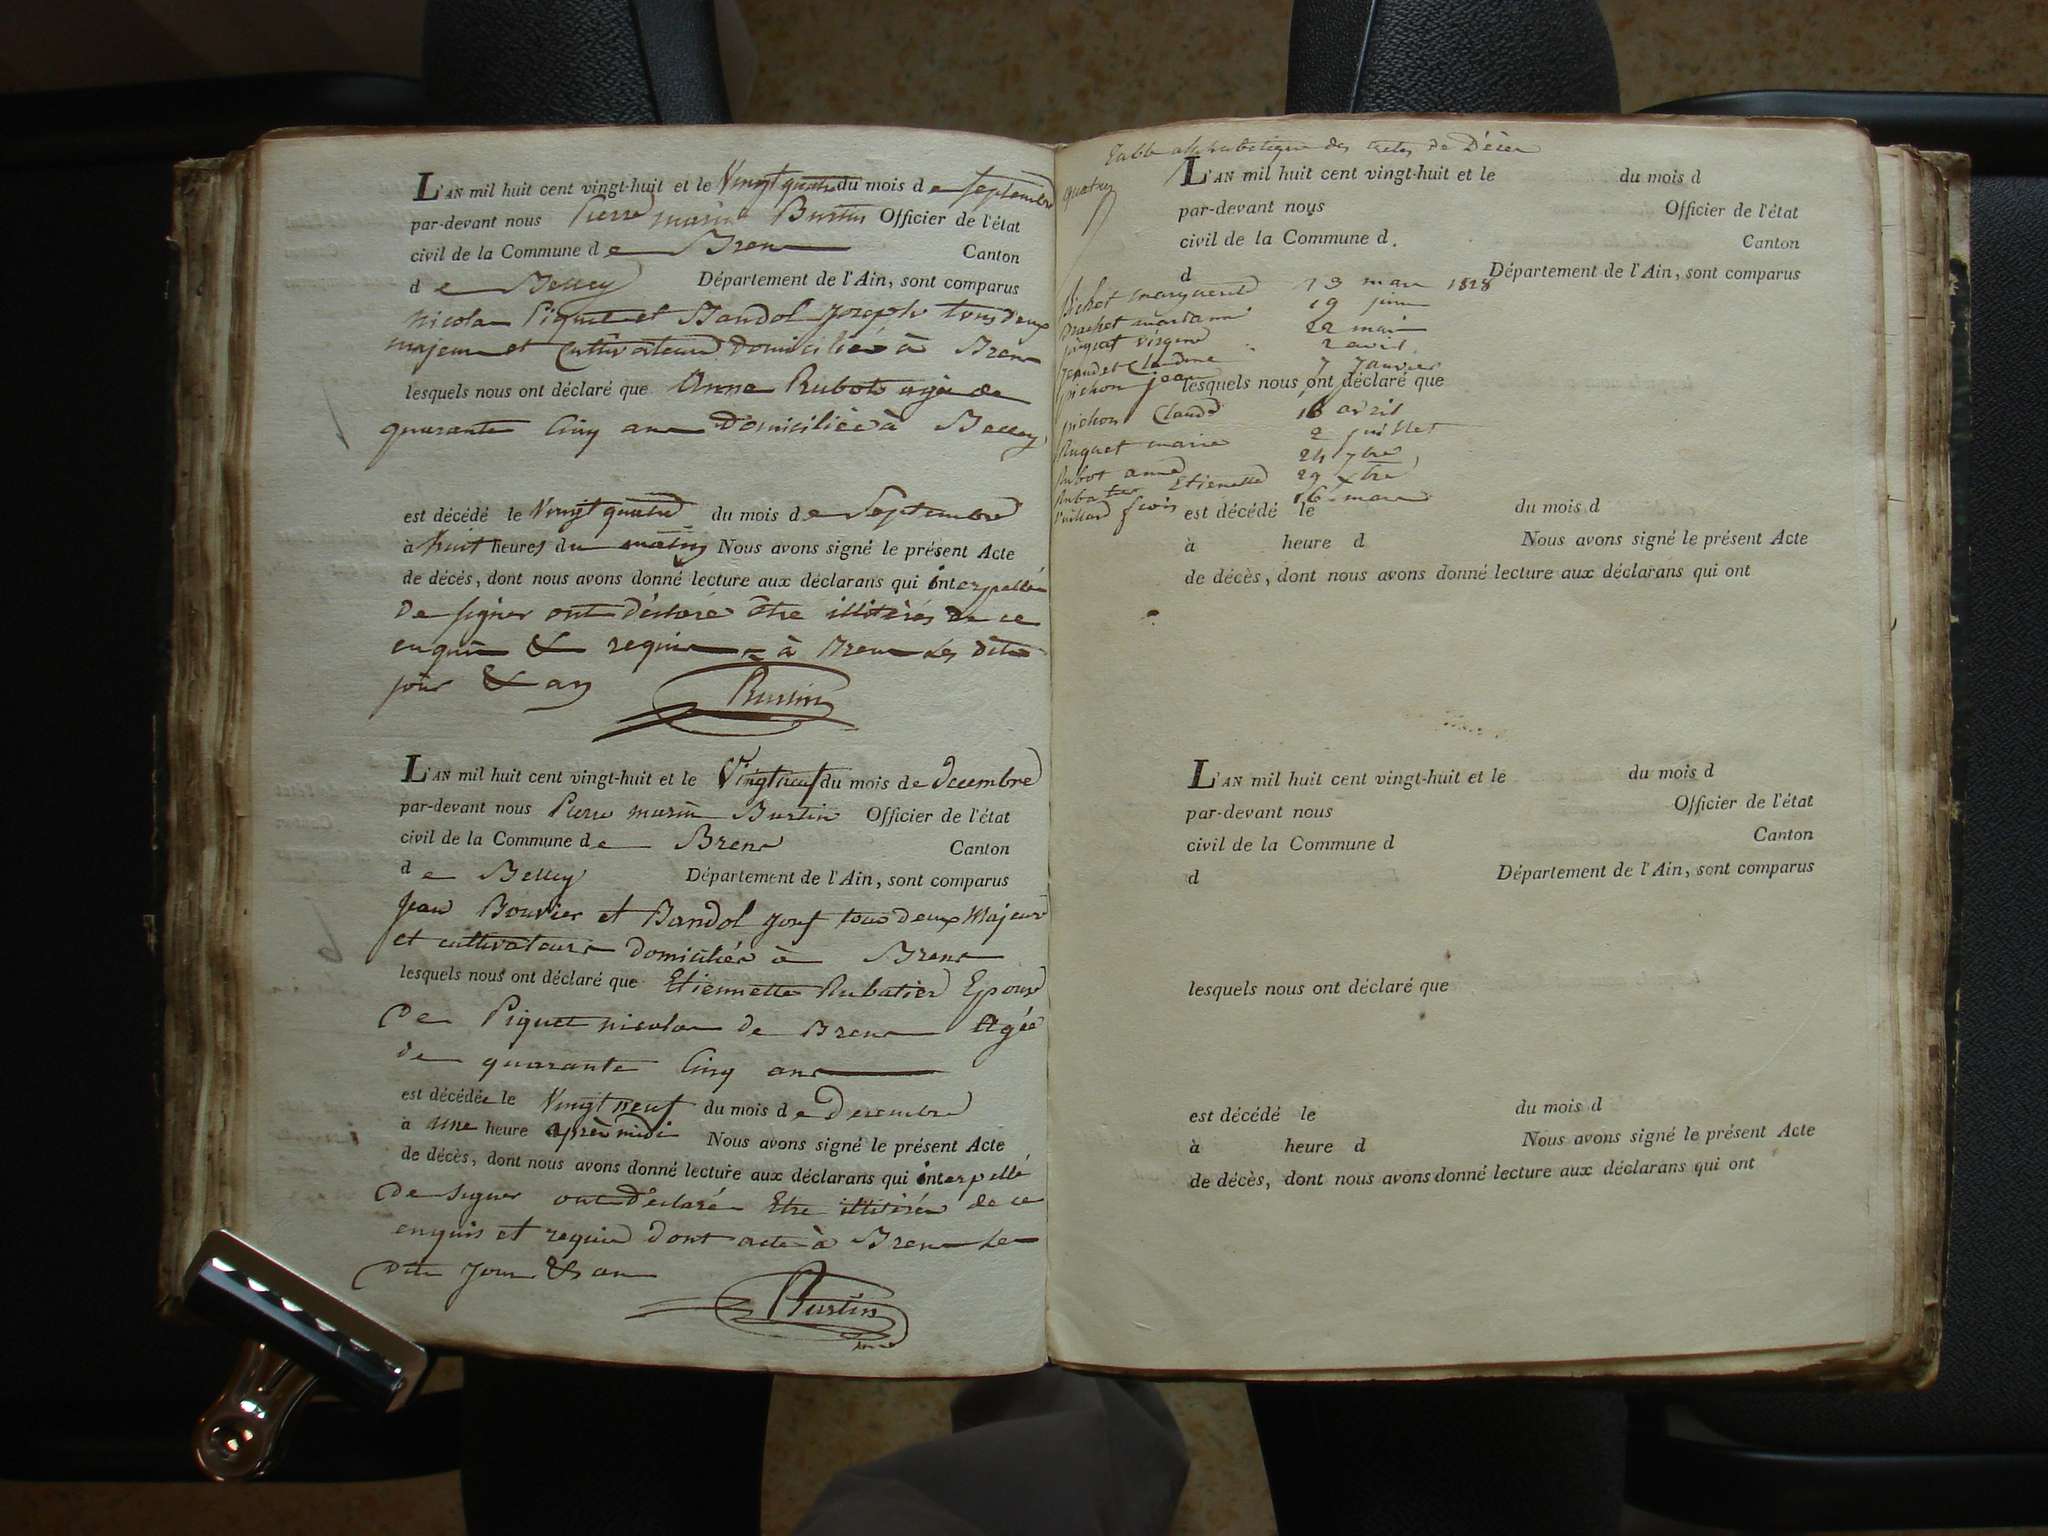 L'AN mil huit cent vingt-huit et le Vingt quatre du mois de Septembre
par-devant nous Pierre marin Burtin Officier de l'état
civil de la Commune de Bren Canton
de Belley Département de l'Ain, sont comparus
Nicolas Piquet et Bandol Joseph tous deux
majeurs et Cultivateurs Domiciliés à Bren
lesquels nous ont déclaré que Anne Rubot agée de
quarante Cinq ans Domiciliée à Belley
est décédé le Vingt quatre du mois de Septembre
à huit heures du matin Nous avons signé le présent Acte
de décès, dont nous avons donné lecture aux déclarans qui interpellés
De signer ont déclaré être illitérés de ce
enquis & requis à Bren les dits
jour & an
Burtin
L'AN mil huit cent vingt-huit et le Vingt neuf du mois de decembre
par-devant nous Pierre marin Burtin Officier de l'état
civil de la Commune de Bren Canton
de Belley Département de l'Ain, sont comparus
Jean Bouvier et Bandol Josf tous deux Majeurs
et cultivateurs Domiciliés à Bren
lesquels nous ont déclaré que Etiennette Rubatier Epouse
De Piquet nicolas de Bren Agée
de quarante Cinq ans
est décédée le Vingt neuf du mois de Decembre
à une heure après midi Nous avons signé le présent Acte
de décès, dont nous avons donné lecture aux déclarans qui interpellé
De signer ont Déclaré Etre illitérés de ce
enquis et requis Dont acte à Bren les
Dits Jour & an
Burtin
Table alphabetique des actes de Décès
L'AN mil huit cent vingt-huit et le du mois d
par-devant nous Officier de l'état
civil de la Commune d Canton
d Département de l'Ain, sont comparus
Marguerite 13 mars 1828
19 juin
virginie 22 mai
Claudine 2 avril
pichon jean 7 Janvier
lesquels nous ont déclaré que
pichon Claude 18 avril
marie 2 juillet
Rubot anne 24 7bre
Rubatier Etiennette 29 Xbre
fcois 16 mars
est décédé le du mois d
à heure d Nous avons signé le présent Acte
de décès, dont nous avons donné lecture aux déclarans qui ont
L'AN mil huit cent vingt-huit et le du mois d
par-devant nous Officier de l'état
civil de la Commune d Canton
d Département de l'Ain, sont comparus
lesquels nous ont déclaré que
est décédé le du mois d
à heure d Nous avons signé le présent Acte
de décès, dont nous avons donné lecture aux déclarans qui ont